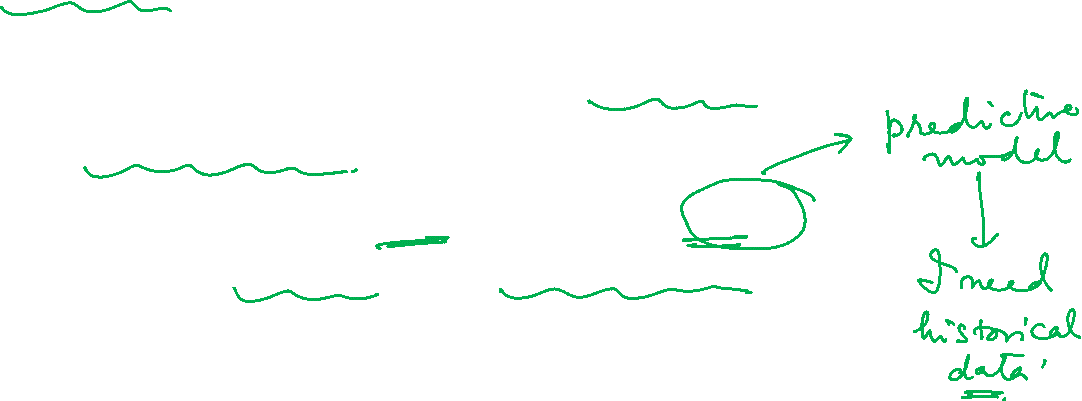 predictive
model
I need
historical
data